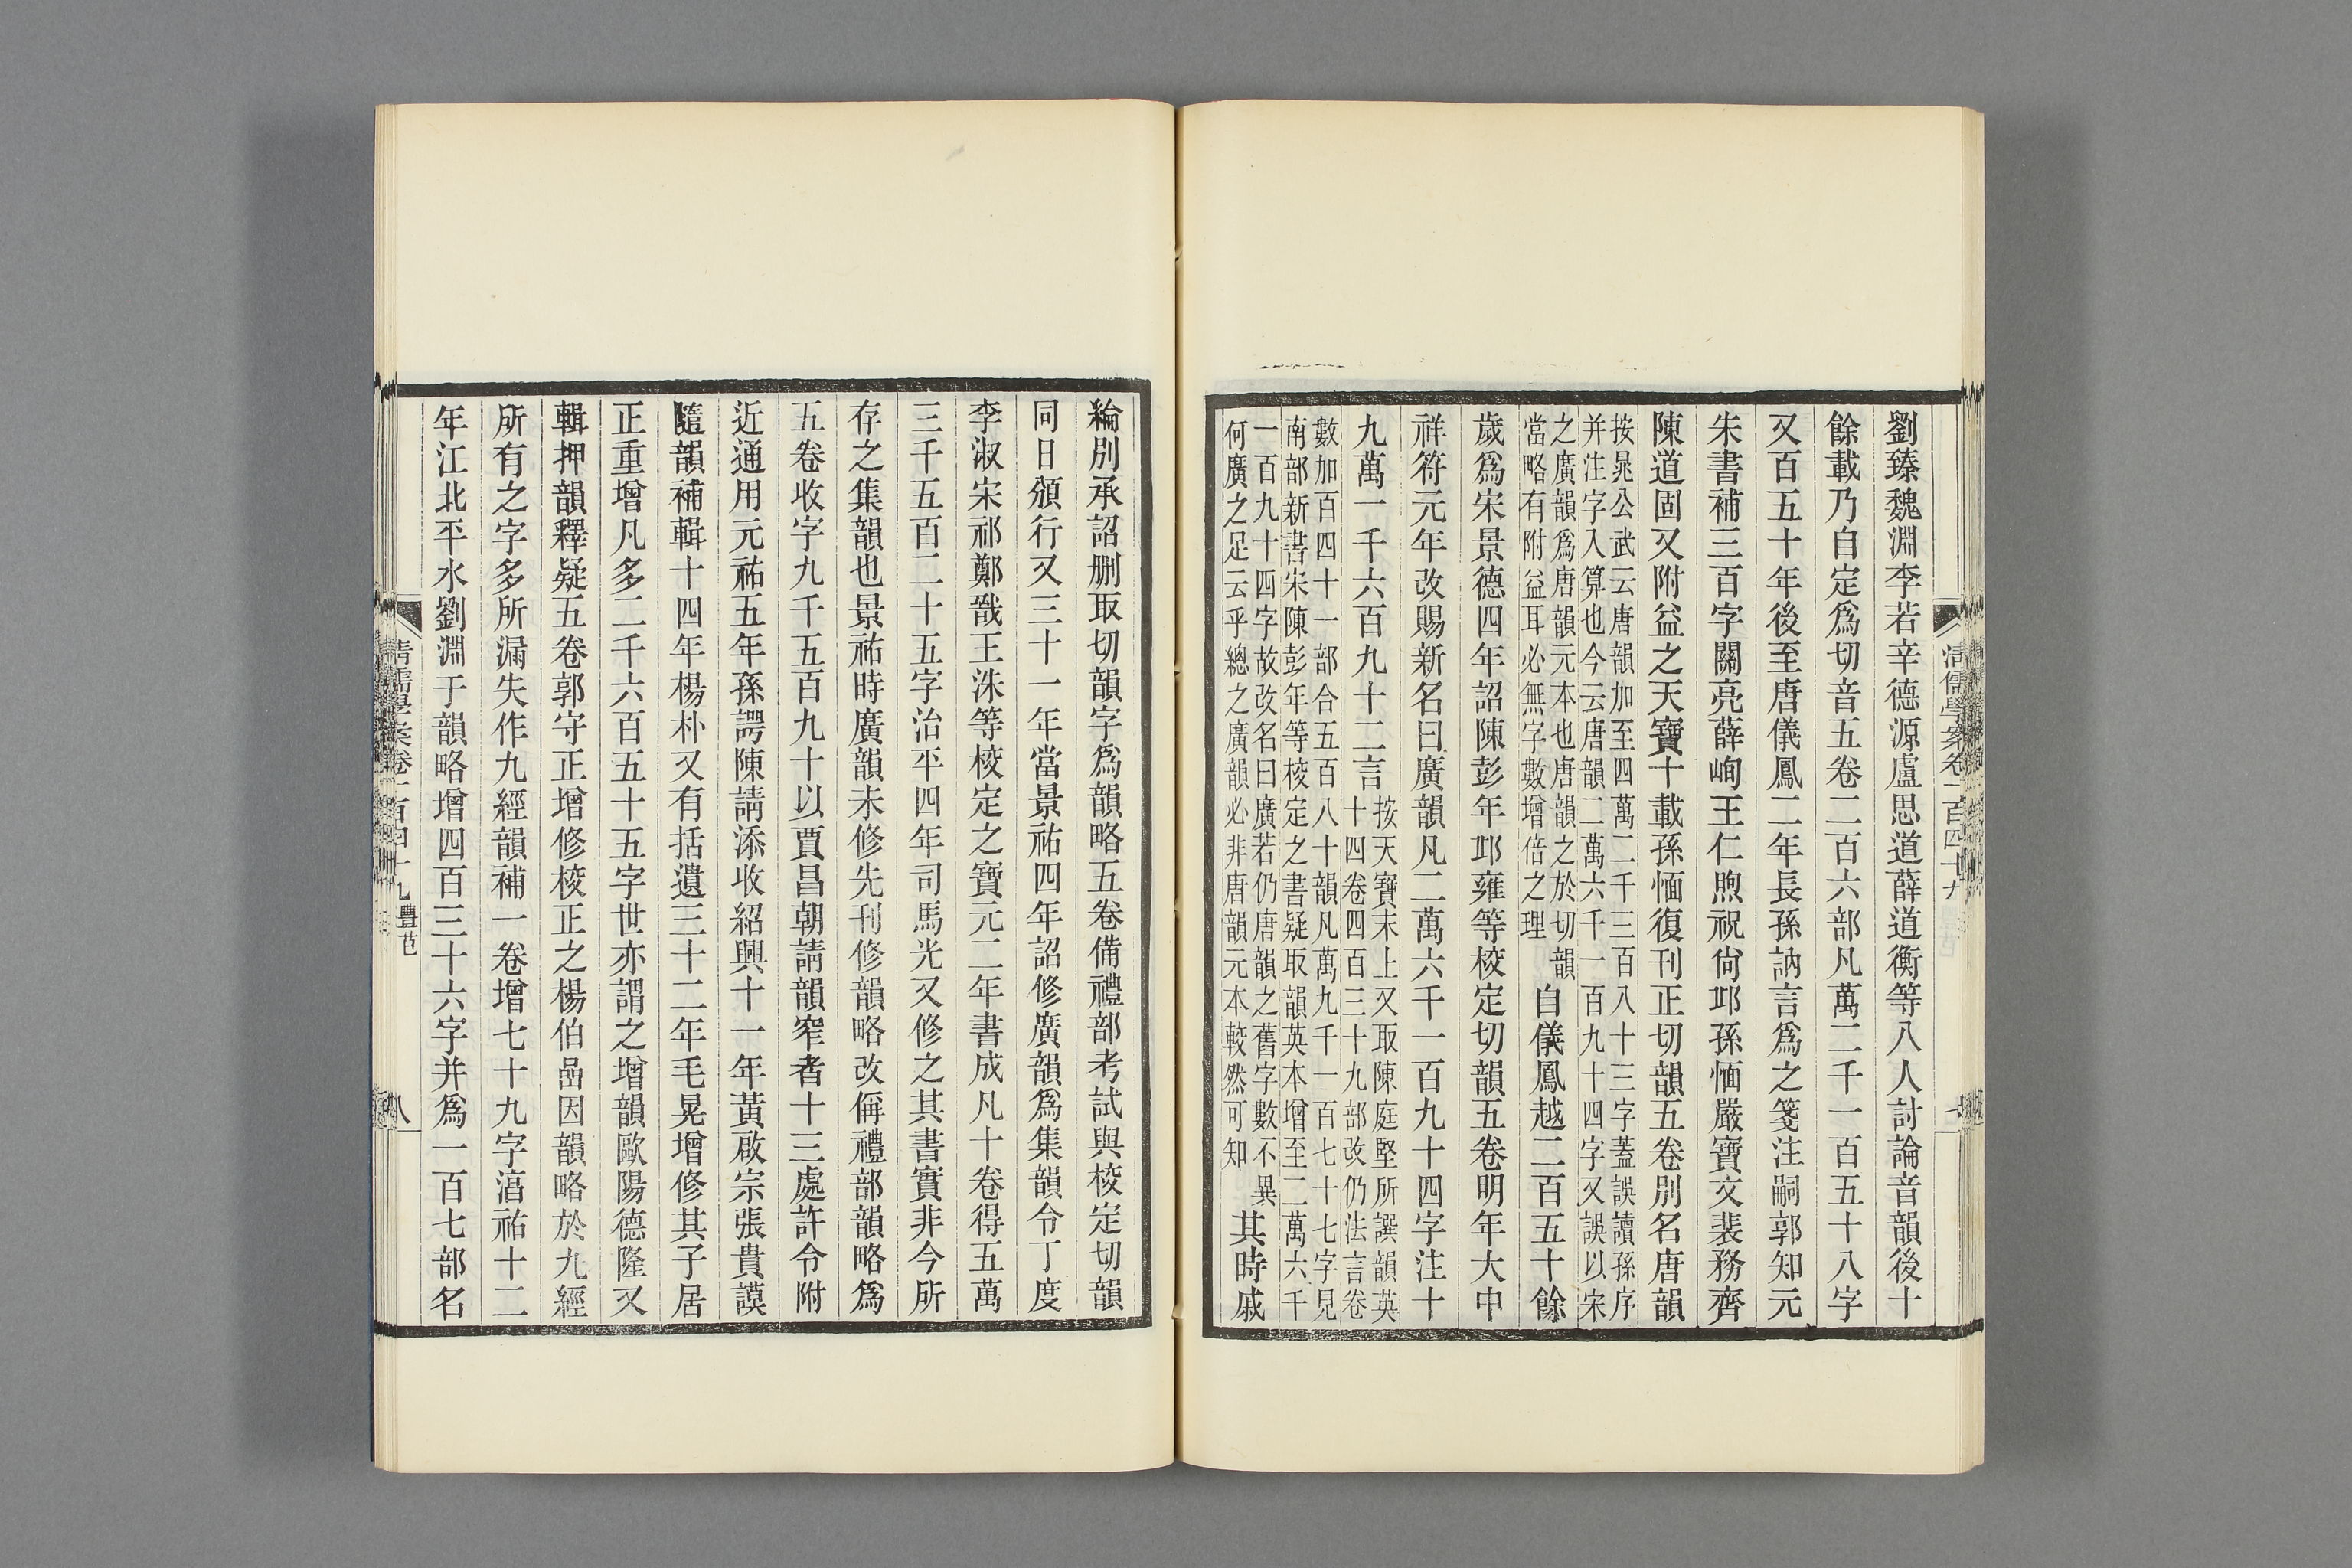 劉臻魏淵李若辛德源盧思道薛道衡等八人討論音韻後十
餘載乃自定爲切音五卷二百六部凡萬二千一百五十八字
又百五十年後至唐儀鳳二年長孫訥言爲之箋注嗣郭知元
朱書補三百字關亮薛峋王仁煦祝尙邱孫愐嚴寶文裴務齊
陳道固又附益之天寶十載孫愐復刊正切韻五卷別名唐韻
按晁公武云唐韻加至四萬二千三百八十三字蓋誤讀孫序
并注字入算也今云唐韻二萬六千一百九十四字又誤以宋
之廣韻爲唐韻元本也唐韻之於切韻
當略有附益耳必無字數增倍之理
自儀鳳越二百五十餘
歲爲宋景德四年詔陳彭年邱雍等校定切韻五卷明年大中
祥符元年改賜新名曰廣韻凡二萬六千一百九十四字注十
九萬一千六百九十二言
按天寶末上又取陳庭堅所譔韻英
十四卷四百三十九部改仍法言卷
數加百四十一部合五百八十韻凡萬九千一百七十七字見
南部新書宋陳彭年等校定之書疑取韻英本增至二萬六千
一百九十四字故改名曰廣若仍唐韻之舊字數不異
何廣之足云乎總之廣韻必非唐韻元本較然可知
其時戚
綸別承詔刪取切韻字爲韻略五卷備禮部考試與校定切韻
同日頒行又三十一年當景祐四年詔修廣韻爲集韻令丁度
李淑宋祁鄭戩王洙等校定之寶元二年書成凡十卷得五萬
三千五百二十五字治平四年司馬光又修之其書實非今所
存之集韻也景祐時廣韻未修先刊修韻略改偁禮部韻略爲
五卷收字九千五百九十以賈昌朝請韻窄者十三處許令附
近通用元祐五年孫諤陳請添收紹興十一年黃啟宗張貴謨
隨韻補輯十四年楊朴又有括遺三十二年毛晃增修其子居
正重增凡多二千六百五十五字世亦謂之增韻歐陽德隆又
輯押韻釋疑五卷郭守正增修校正之楊伯嵒因韻略於九經
所有之字多所漏失作九經韻補一卷增七十九字淳祐十二
年江北平水劉淵于韻略增四百三十六字并爲一百七部名
清儒學案卷一百四十九
八